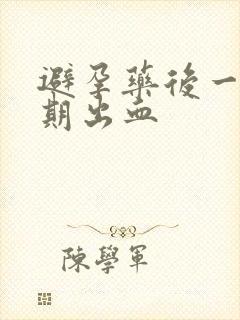 避孕藥後一
期出血
陳學軍